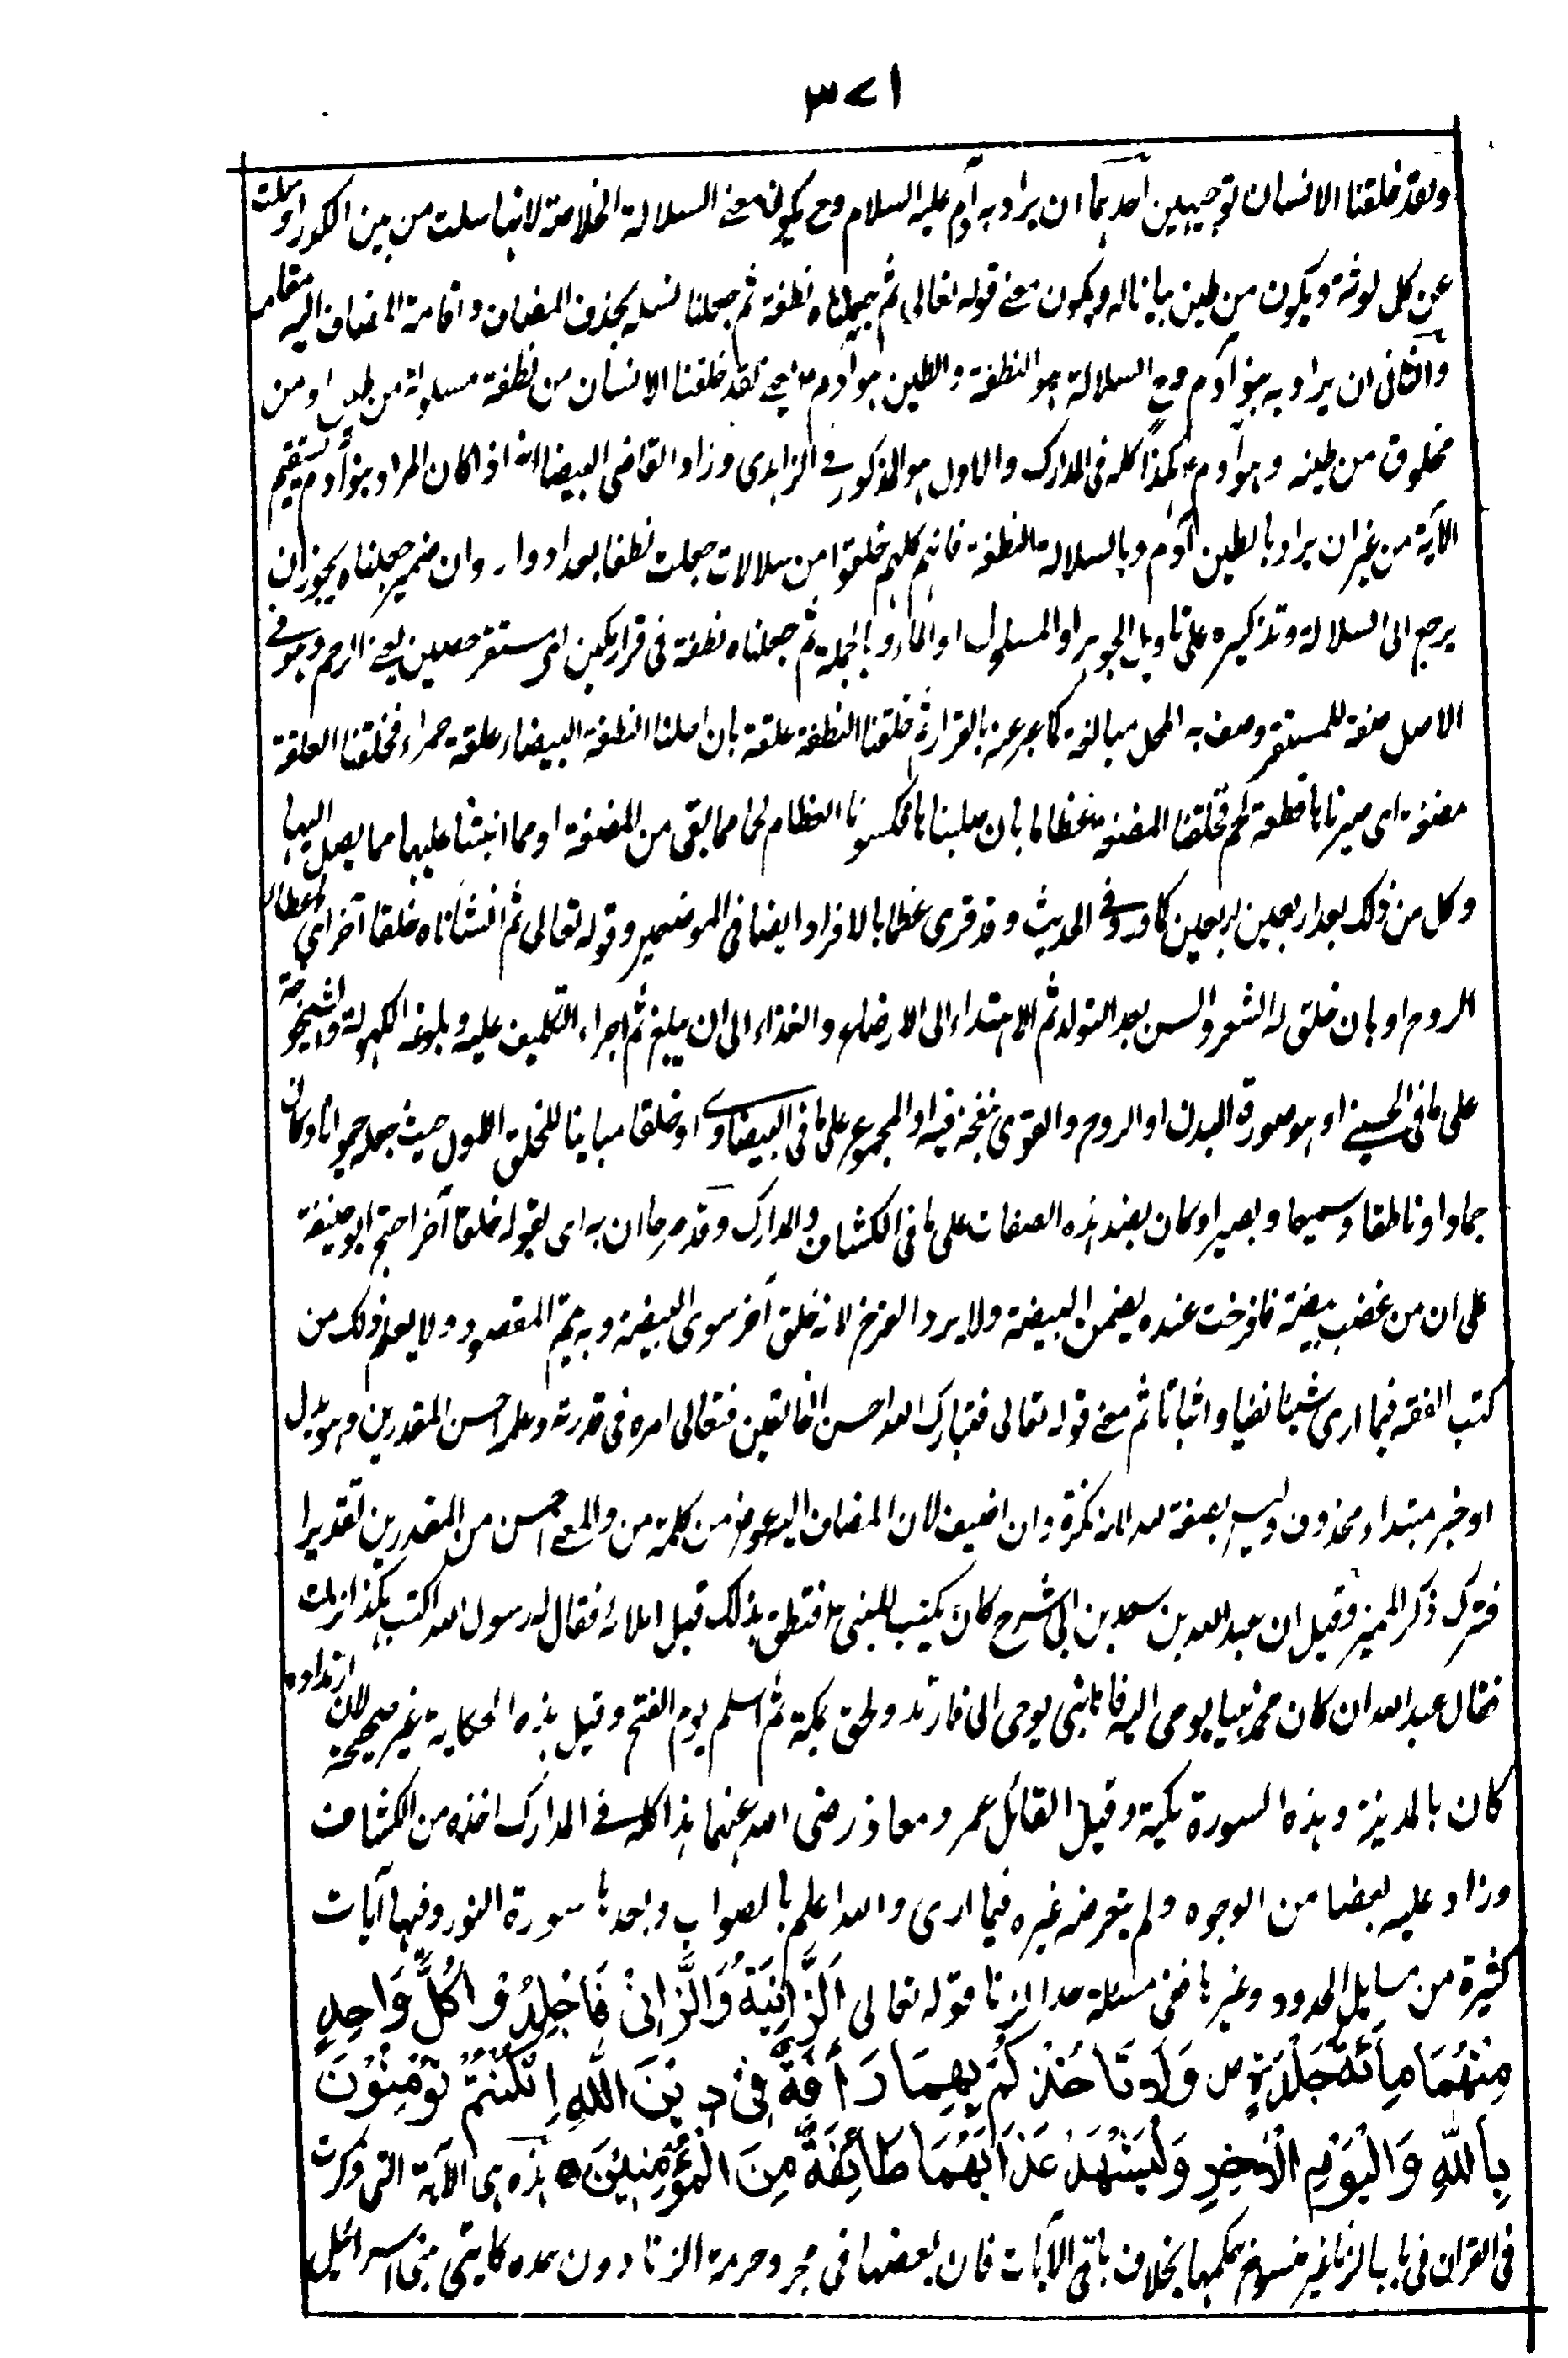 ٣٧١
ولقد خلقنا الانسان توجيهين احدهما ان يراد به آدم عليه السلام وح يكون معنے السلالة الخلاصة لانها سلت من بين الكدر او سلت
عن كل لوثة ويكون من طين بيانا له ويكون معنے قوله تعالى ثم جعلناه نطفة ثم جعلنا نسله بحذف المضاف واقامة المضاف اليه مقامه
والثانى ان يراد به بنو آدم وح السلالة هو النطفة والطين هو آدم ع يعنے لقد خلقنا الانسان من نطفة مسلولة من طين او من
مخلوق من طينه وهو آدم ع هكذا كله فى المدارك والاول هو المذكور فے الزاهدى وزاد القاضى البيضا انه اذا كان المراد بنو آدم يستقيم
الآية من غير ان يراد بالطين آدم وبالسلالة النطفة فانهم كلهم خلقوا من سلالات جعلت نطفا بعد ادوار وان ضمير جعلناه يجوز ان
يرجع الى السلالة وتذكيره على تاويل الجوهر او المسلول او الماء وبالجملة ثم جعلناه نطفة فى قرار مكين اى مستقر حصين يعنے الرحم وهو فے
الاصل صفة للمستقر وصف به المحل مبالغة كما عبر عنه بالقرار ثم خلقنا النطفة علقة بان احلنا النطفة البيضاء علقة حمراء فخلقنا العلقة
مضغة اى صيرناها قطعة لحم فخلقنا المضغة عظاما بان صلبناها فكسونا العظام لحما مما بقى من المضغة او مما انبتنا عليها مما يصل اليها
وكل من ذلك بعد اربعين اربعين كما ورد فے الحديث وقد قرى عظما بالافراد ايضا فى الموضعين وقوله تعالى ثم انشأناه خلقا آخر اى اعطاء
الروح او بان خلق له الشعر والسن بعد التولد ثم الاهتداء الى الارضاع والغذاء الى ان يبلغ ثم اجراء التكليف عليه وبلوغه الكهولة والشيخوخة
على ما فى الحسينے او هو صورة البدن او الروح والقوى بنفخه فيه او المجموع على ما فى البيضاوے او خلقا مباينا للخلق الاول حيث جعله حيوانا وكان
جمادا وناطقا وسميعا وبصيرا وكان بضد هذه الصفات على ما فى الكشاف والمدارك وقد صرحا ان به اى بقوله خلقا آخر احتج ابو حنيفة
على ان من غصب بيضة فافرخت عنده يضمن البيضة ولا يرد الفرخ لانه خلق آخر سوى البيضة وبه يتم المقصود ولا يعلم ذلك من
كتب الفقه فيما ارى شيئا نفيا واثباتا ثم معنے قوله تعالى فتبارك الله احسن الخالقين فتعالى امره فى قدرته وعلمه احسن المقدرين وهو بدل
او خبر مبتداء محذوف وليس بصفة لله لانه نكرة وان اضيف لان المضاف اليه عوض من كلمة من والمعنے احسن من المقدرين تقديرا
فترك ذكر المميز وقيل ان عبد الله بن سعد بن ابى شرح كان يكتب للنبى ع فنطق بذلك قبل املائه فقال له رسول الله اكتب هكذا نزلت
فقال عبد الله ان كان محمد نبيا يوحى اليه فانا نبى يوحى الى فارتد ولحق بمكة ثم اسلم يوم الفتح وقيل هذه الحكاية غير صحيحة لان ارتداده
كان بالمدينة وهذه السورة مكية وقيل القائل عمر ومعاذ رضى الله عنهما هذا كله فے المدارك اخذه من الكشاف
وزاد عليه بعضا من الوجوه ولم يتعرضه غيره فيما ارى والله اعلم بالصواب وبعدها سورة النور وفيها آيات
كثيرة من مسايل الحدود وغيرها ففى مسئلة حد الزنا قوله تعالى اَلزَّانِيَةُ وَالزَّانِىْ فَاجْلِدُوْا كُلَّ وَاحِدٍ
مِنْهُمَا مِائَةَ جَلْدَةٍ ص وَلَا تَاخُذْكُمْ بِهِمَا رَأْفَةٌ فِىْ دِيْنِ اللّٰهِ اِنْ كُنْتُمْ تُؤْمِنُوْنَ
بِاللّٰهِ وَالْيَوْمِ الْاٰخِرِ وَلْيَشْهَدْ عَذَابَهُمَا طَائِفَةٌ مِنَ الْمُؤْمِنِيْنَ ه هذه هى الآية التى ذكرت
فى القران فى باب الزنا غير منسوخ حكمها بخلاف باقى الآيات فان بعضها فى مجرد حرمة الزنا دون حده كما يتى بنى اسرائيل